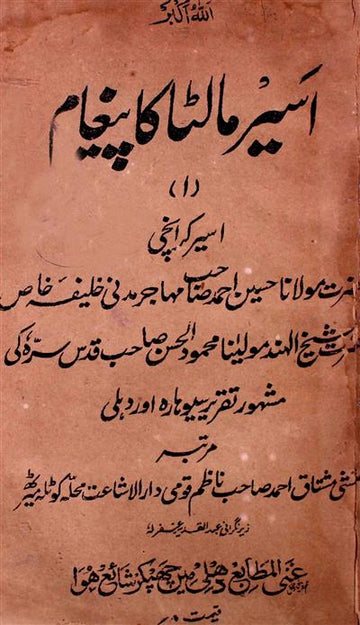 اللہ اکبر
اسیر مالٹا کا پیغام
(۱)
اسیر کراچی
حضرت مولانا حسین احمد صاحب مہاجر مدنی خلیفہ خاص
حضرت شیخ الہند مولینا محمود الحسن صاحب قدس سرہٗ کی
مشہور تقریر سیوہارہ اور دہلی
مرتبہ
منشی مشتاق احمد صاحب ناظم قومی دار الاشاعت محلہ کوٹلہ میرٹھ
زیر نگرانی عبد القدیر عفرلہ
غنی المطابع دھلی میں چھپکر شائع ھوا
قیمت